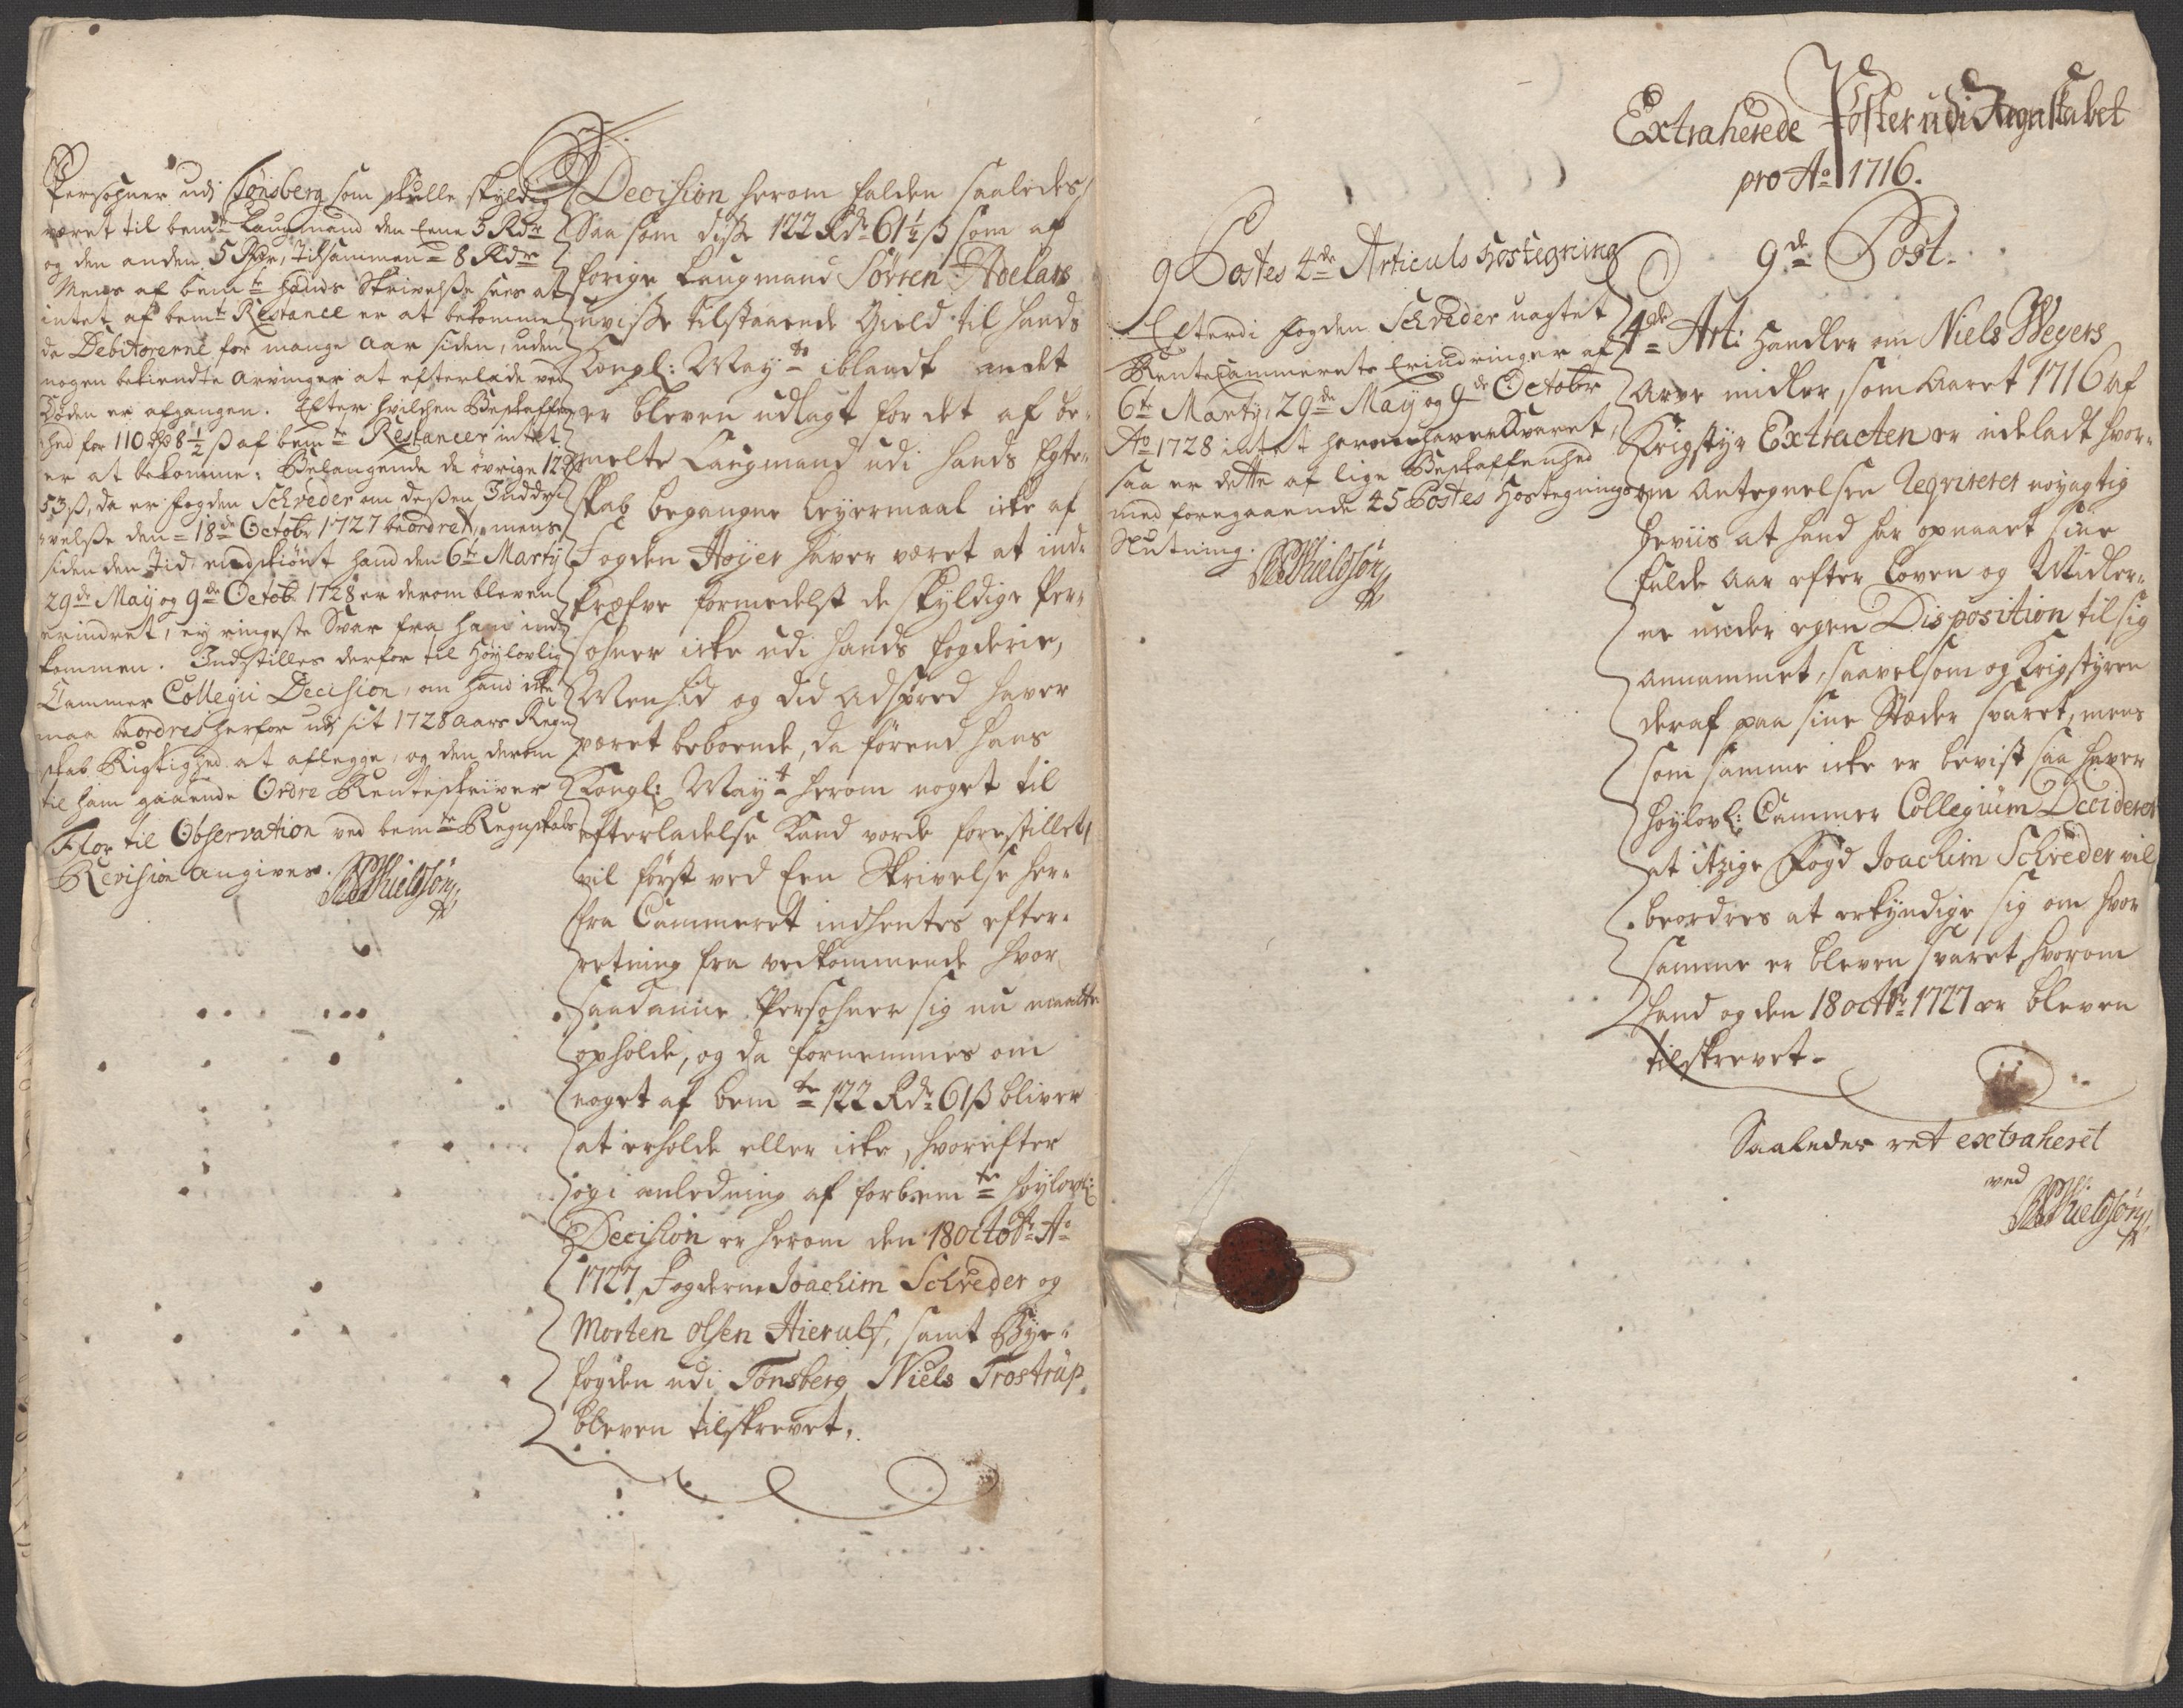 Persohner udi Tønsberg som skulle skyldig
været til bemte Laugmand den Eene 3 Rdr
og den anden 5 Rdr, Tilsammen = 8 Rdr
Mens af bemte Hands Skrivelße sees at
intet af bemte Restance er at bekomme
da Debitorerne for mange Aar siden, uden
nogen bekiendte Arvinger at efterlade ved
Døden er afgangen. Efter hvilchen Beskaffen
hed for 110 Rdr 8½ ß af bemte Restancer intet
er at bekomme: Belangende de øvrige 12 Rdr
53 ß, da er fogden Schreder om deßen Inddri-
velße den 18de Octobr 1727 beordret, mens
siden den Tid, endskiønt hand den 6te Marty
29de May og 9de Octob: 1728 er derom bleven
erindret, ey ringeste Svar fra ham ind-
kommen. Indstilles derfor til Høylovlig
Cammer Collegii Decision, om hand icke
maa beordres herfor udi sit 1728 Aars Regn
skab Rigtighed at aflegge, og den derom
til ham gaaende Ordre Renteskriver
Flor til Observation ved bemte Regnskabs
Revision angives.
Decision herom falden saaledes
Saasom diße 122 Rdr 61½ ß som af
forige Laugmand Sørren Hoelars
uvisße tilstaaende Gield til Hands
Kongl: Mayts iblandt andet
er bleven udlagt for det af be-
melte Laugmand udi hands Egte-
skab begangne Leyermaal icke af
Fogden Høyer haver været at ind-
kræfve formedelst de skyldige Per-
sohner icke udi hands fogderie,
Men hid og did adspred haver
været beboende, da førend Hans
Kongl: Mayt herom noget til
efterladelse kand vorde forestillet,
vil først ved Een Skrivelse her-
fra Cammeret indhentes efter-
retning fra vedkommende hvor
saadanne Persohner sig nu maatte
opholde, og da fornemmes om
noget af bemte 122 Rdr 61 ß bliver
at erholde eller icke, hvorefter
og i anledning af forbemte høylovl:
Decision er herom den 18 octobr Ao
1727 Fogderne Joachim Schreder og
Morten Olsen Hierulf, samt Bye-
fogden udi Tønsberg Niels Trostrup
bleven tilskrevet.
Extraherede Poster udi Regnskabet
pro Ao 1716.
9 Postes 4de Articuls Hostegning
Efterdi fogden Schreder uagtet
RenteCammerets Erindringer af
6te Marty, 29de May og 9de Octobr
Ao 1728 intet herom haver Svaret,
saa er dette af lige Beskaffenhed
med foregaaende 45 Postes Hostegnings
Slutning.
9de Post.
4de Art: Handler om Niels Weyers
Arve midler, som Aaret 1716 af
Krigstyr Extracten er udeladt hvor-
om Antegnelsen Reqvireret nøyagtig
beviis at hand har opnaaet sine
fulde Aar efter Loven og Midler-
ne under egen Disposition til sig
annammet, saavelsom og Krigstyren
deraf paa sine Stæder svaret, mens
som samme icke er bevist saa haver
høylovl: Cammer Collegium Decideret
at itzige Fogd Joachim Schreder vil
beordres at erkyndige sig om hvor
samme er bleven svaret, hvorom
hand og den 18 octbr 1727 er bleven
tilskrevet.
Saaledes ret extraheret
ved